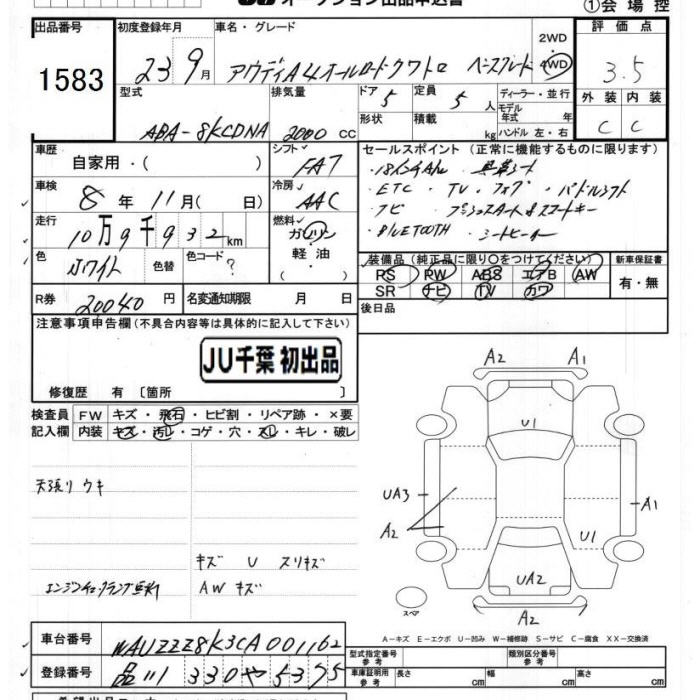 オークション出品申込書
①会場控
出品番号 1583
初度登録年月 23 9月
車名・グレード アウディA4オールロードクワトロ ベースグレード
2WD
4WD
評価点 3.5
型式 ABA-8KCDNA
排気量 2000 CC
ドア 5
定員 5人
形状
積載 kg
ディーラー・並行
モデル年式 年式
ハンドル 左・右
外装 C
内装 C
車歴 自家用・( )
シフト FA7
車検 8年11月( 日)
冷房 AAC
走行 10万9千932km
燃料 ガソリン 軽油 ・( )
色 ホワイト
色替
色コード ?
R券 20040円
名変通知期限 月 日
セールスポイント(正常に機能するものに限ります)
・18インチAW ・黒革シート
・ETC ・TV ・フォグ ・パドルシフト
・ナビ ・プッシュスタート&スマートキー
・BLUETOOTH ・シートヒーター
装備品(純正品に限り○をつけてください)
PS PW ABS エアB AW
SR ナビ TV カワ
新車保証書
有・無
後日品
注意事項申告欄(不具合内容等は具体的に記入して下さい)
JU千葉 初出品
修復歴 有 〔箇所 〕
検査員記入欄
FW キズ・飛石・ヒビ割・リペア跡・×要
内装 キズ・汚レ・コゲ・穴・スレ・キレ・破レ
天張リ ウキ
キズ U スリキズ
エンジンチェックランプ点灯
AW キズ
A2 A1
U1
UA3
A1
A2
U1
UA2
スペア
A2
A-キズ E-エクボ U-凹み W-補修跡 S-サビ C-腐食 XX-交換済
車台番号 WAUZZZ8K3CA001162
登録番号 品川 330や5375
型式指定番号 参考
類別区分番号 参考
車庫証明用 参考
長さ cm
幅 cm
高さ cm